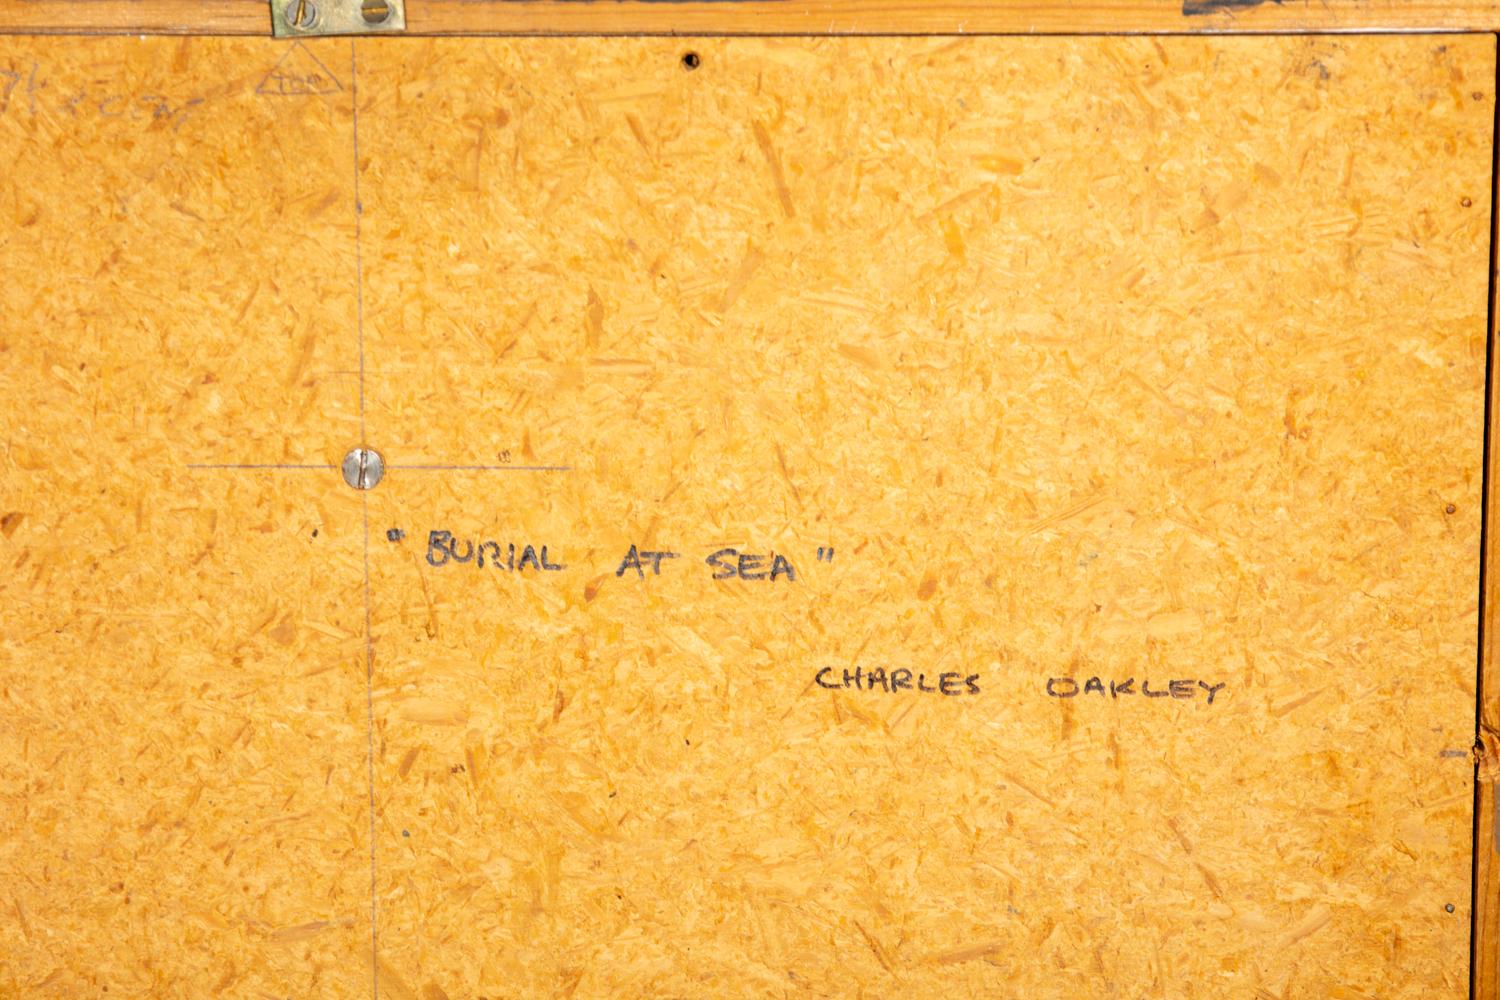 TOP
" BURIAL AT SEA "
CHARLES OAKLEY